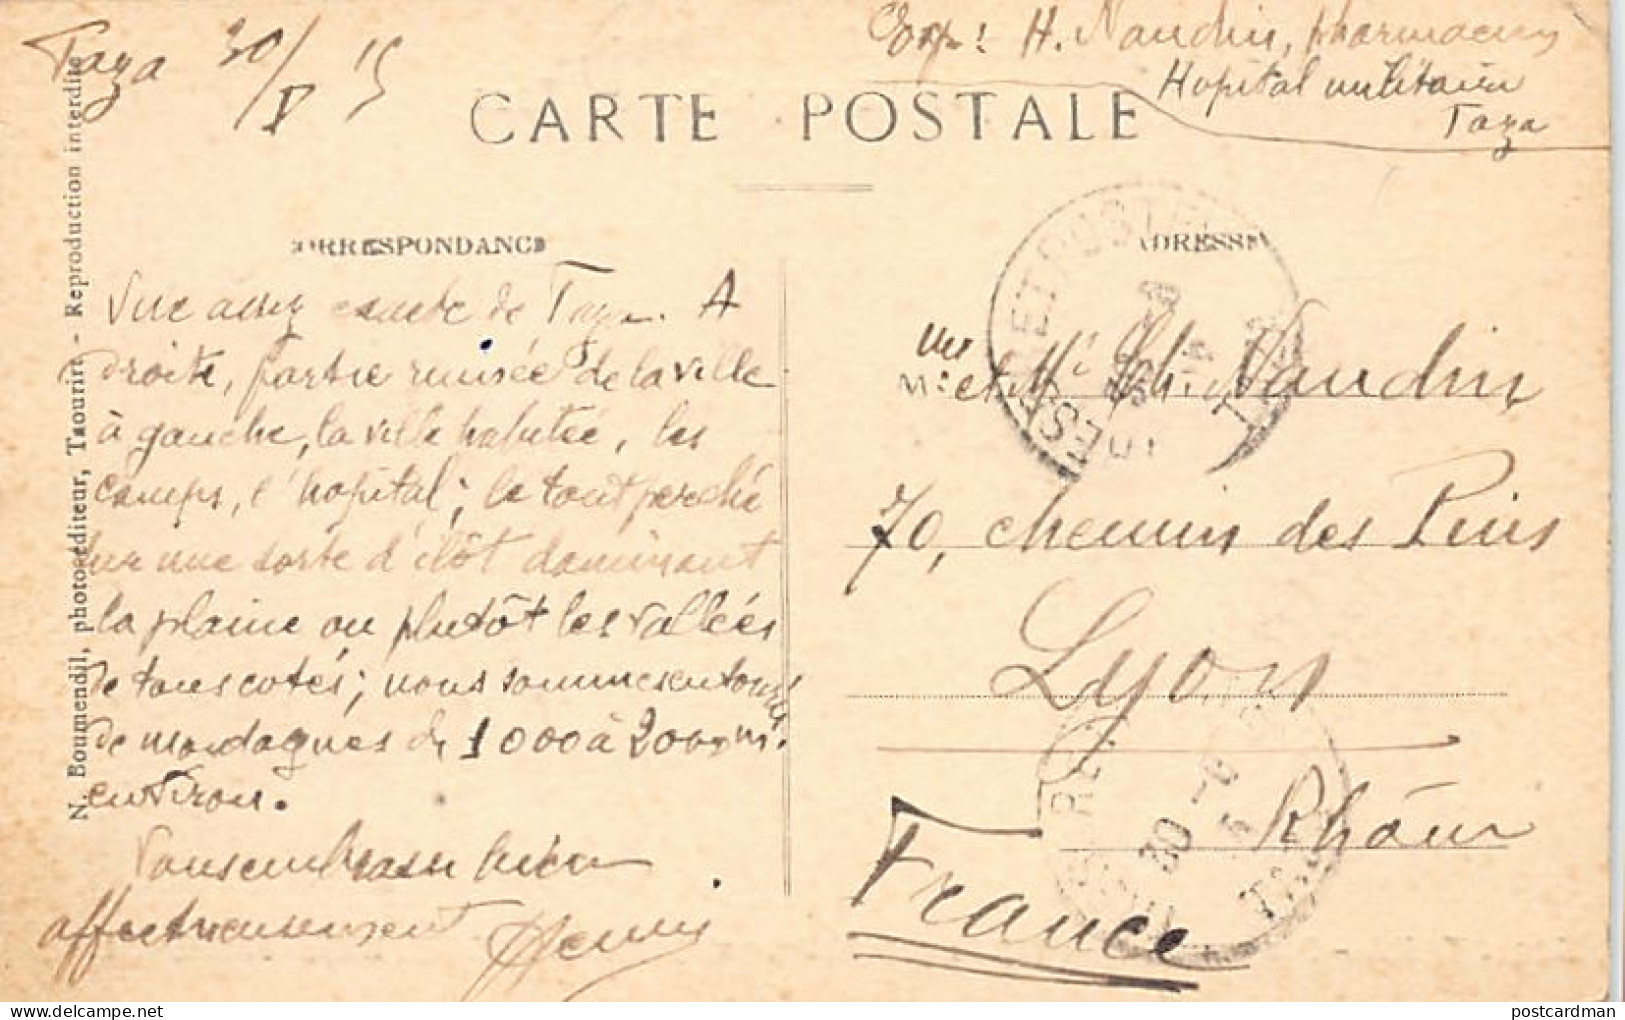 Taza 30/V 15
Exp: H. Naudin, pharmacien
Hopital militaire
Taza
CARTE POSTALE
CORRESPONDANCE
ADRESSE
N. Boumendil, photo-éditeur, Taourirt - Reproduction interdite
Vue assez exacte de Taza. A
droite, partie ruinée de la ville
à gauche, la ville habitée, les
camps, l'hopital; le tout perché
sur une sorte d'îlôt dominant
la plaine ou plutôt les vallées
de tous cotés; nous sommes entourés
de montagnes de 1000 à 2000 m.
environ.
Vous embrasse bien
affectueusement Henri
Mr et Me Ch. Naudin
70, chemin des Pins
Lyon
Rhône
France
30 -5
15
postcardman